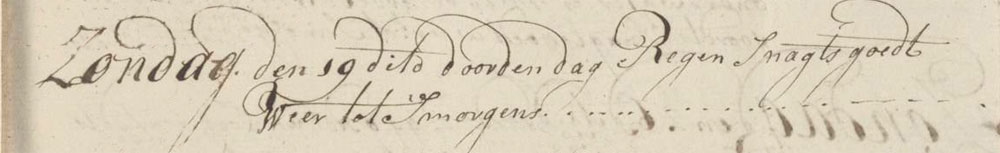 Zondag. den 19 dito doorden dag Regen Snagts goedt
Weer tot Smorgens. . . . . . . . . . . . . . . . . .